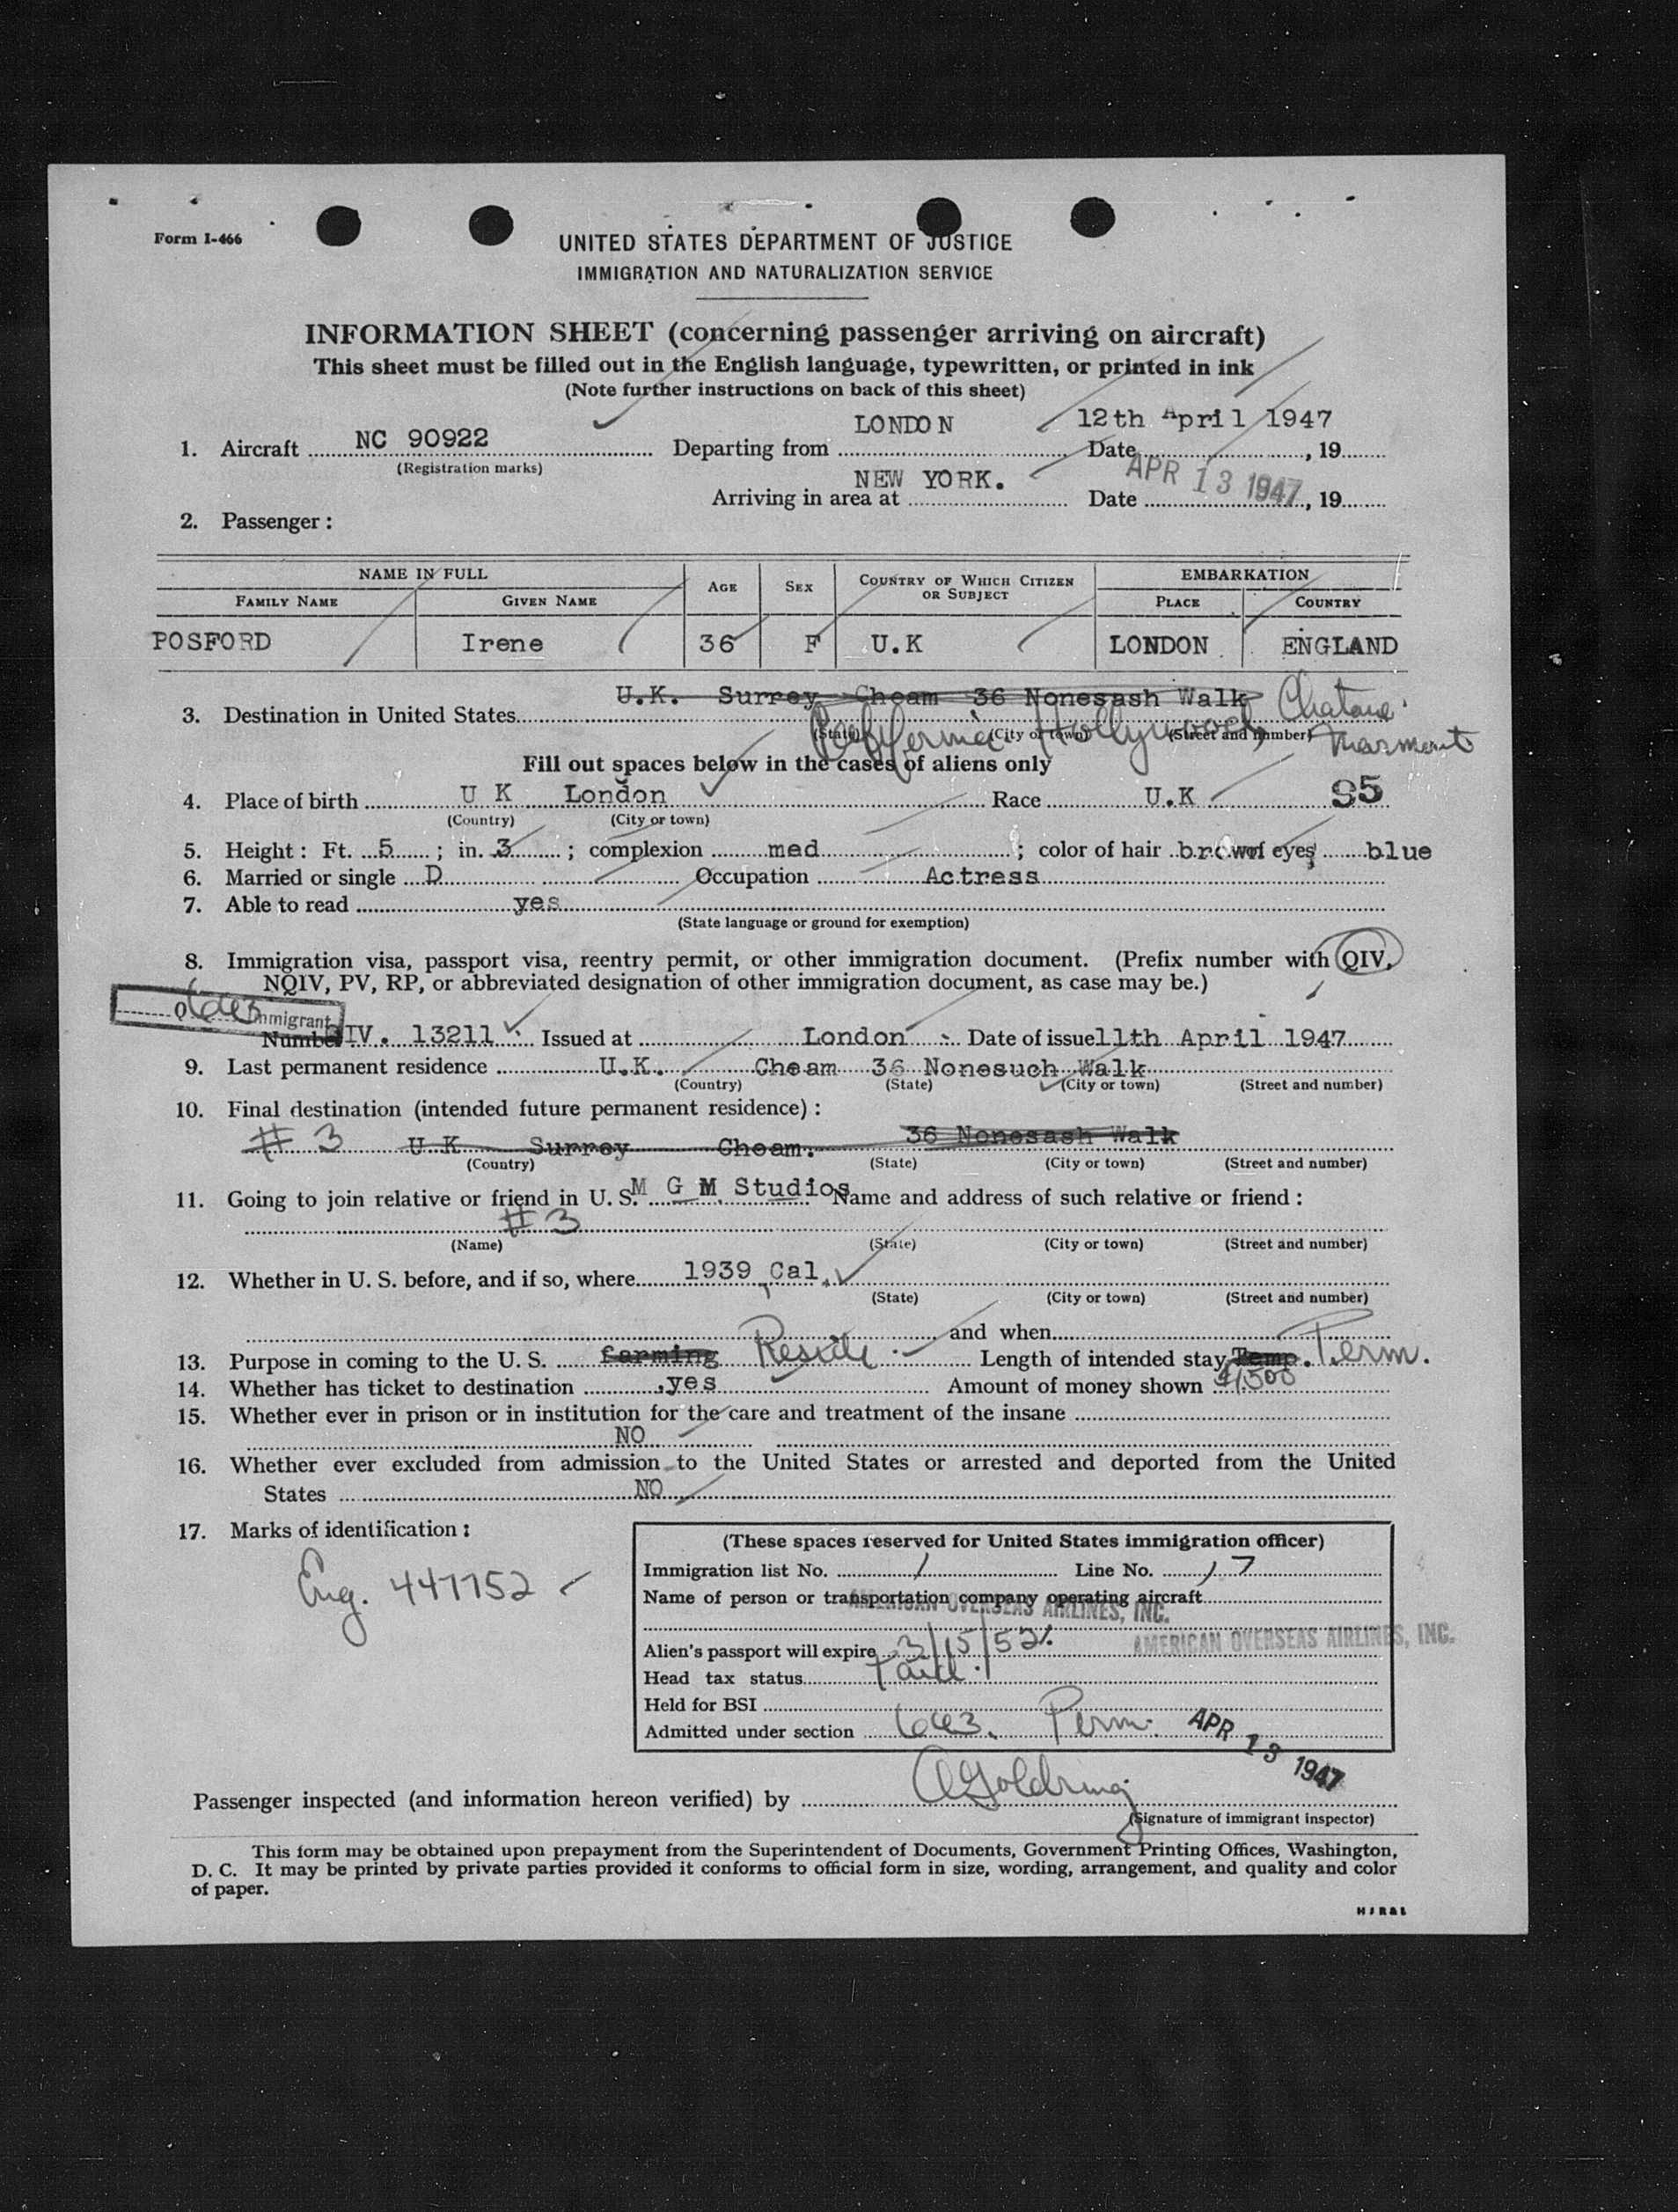 Form I-466
UNITED STATES DEPARTMENT OF JUSTICE
IMMIGRATION AND NATURALIZATION SERVICE
INFORMATION SHEET (concerning passenger arriving on aircraft)
This sheet must be filled out in the English language, typewritten, or printed in ink
(Note further instructions on back of this sheet)
1. Aircraft NC 90922 Departing from LONDON Date 12th April 1947, 19
(Registration marks)
Arriving in area at NEW YORK. Date APR 13 1947, 19
2. Passenger:
NAME IN FULL AGE SEX COUNTRY OF WHICH CITIZEN OR SUBJECT EMBARKATION
FAMILY NAME GIVEN NAME PLACE COUNTRY
POSFORD Irene 36 F U.K LONDON ENGLAND
U.K. Surrey Cheam 36 Nonesash Walk Chateau
3. Destination in United States
(State) (City or town) (Street and number)
California Hollywood Marmont
Fill out spaces below in the cases of aliens only
4. Place of birth U K London Race U.K 95
(Country) (City or town)
5. Height: Ft. 5; in. 3; complexion med; color of hair brown of eyes blue
6. Married or single D Occupation Actress
7. Able to read yes
(State language or ground for exemption)
8. Immigration visa, passport visa, reentry permit, or other immigration document. (Prefix number with QIV,
NQIV, PV, RP, or abbreviated designation of other immigration document, as case may be.)
Immigrant
Number QIV. 13211 Issued at London Date of issue 11th April 1947
9. Last permanent residence U.K. Cheam 36 Nonesuch Walk
(Country) (State) (City or town) (Street and number)
10. Final destination (intended future permanent residence):
# 3 U K Surrey Cheam. 36 Nonesash Walk
(Country) (State) (City or town) (Street and number)
11. Going to join relative or friend in U. S. M G M Studios Name and address of such relative or friend:
# 3
(Name) (State) (City or town) (Street and number)
12. Whether in U. S. before, and if so, where 1939 Cal.
(State) (City or town) (Street and number)
and when
13. Purpose in coming to the U. S. farming Reside Length of intended stay Temp. Perm.
14. Whether has ticket to destination yes Amount of money shown $1500
15. Whether ever in prison or in institution for the care and treatment of the insane
NO
16. Whether ever excluded from admission to the United States or arrested and deported from the United
States NO
17. Marks of identification:
Eng. 447752
(These spaces reserved for United States immigration officer)
Immigration list No. 1 Line No. 17
Name of person or transportation company operating aircraft
AMERICAN OVERSEAS AIRLINES, INC.
AMERICAN OVERSEAS AIRLINES, INC.
Alien's passport will expire 3/15/52
Head tax status Paid.
Held for BSI
Admitted under section 6a3. Perm. APR 13 1947
Passenger inspected (and information hereon verified) by A Goldring
(Signature of immigrant inspector)
This form may be obtained upon prepayment from the Superintendent of Documents, Government Printing Offices, Washington,
D. C. It may be printed by private parties provided it conforms to official form in size, wording, arrangement, and quality and color
of paper.